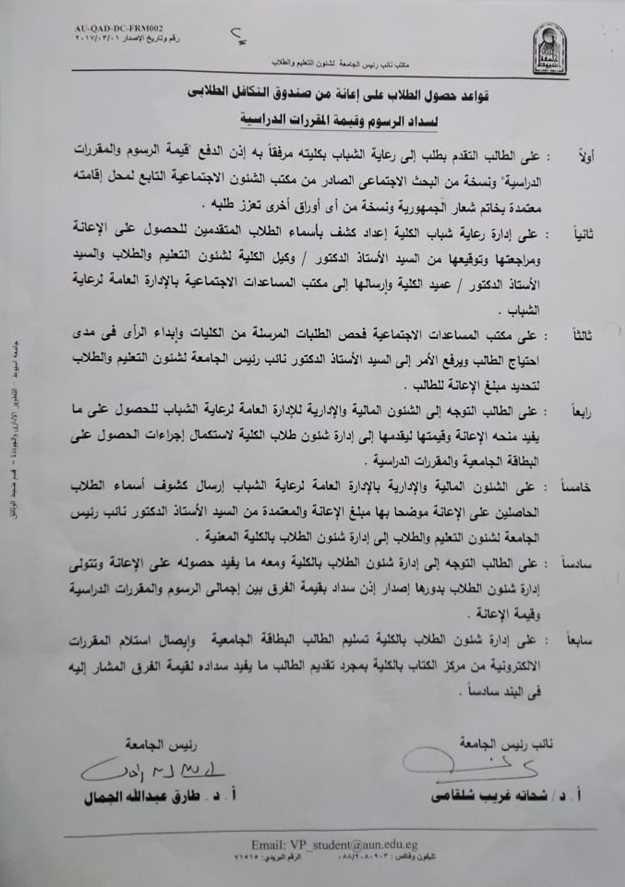 AU-QAD-DC-FRM002
رقم وتاريخ الإصدار ٢٠١٧/٠٣/٠١
مكتب نائب رئيس الجامعة لشئون التعليم والطلاب
قواعد حصول الطلاب على إعانة من صندوق التكافل الطلابى
لسداد الرسوم وقيمة المقررات الدراسية
أولاً : على الطالب التقدم بطلب إلى رعاية الشباب بكليته مرفقاً به إذن الدفع "قيمة الرسوم والمقررات
الدراسية" ونسخة من البحث الاجتماعى الصادر من مكتب الشئون الاجتماعية التابع لمحل إقامته
معتمدة بخاتم شعار الجمهورية ونسخة من أى أوراق أخرى تعزز طلبه .
ثانياً : على إدارة رعاية شباب الكلية إعداد كشف بأسماء الطلاب المتقدمين للحصول على الإعانة
ومراجعتها وتوقيعها من السيد الأستاذ الدكتور / وكيل الكلية لشئون التعليم والطلاب والسيد
الأستاذ الدكتور / عميد الكلية وإرسالها إلى مكتب المساعدات الاجتماعية بالإدارة العامة لرعاية
الشباب .
ثالثاً : على مكتب المساعدات الاجتماعية فحص الطلبات المرسلة من الكليات وإبداء الرأى فى مدى
احتياج الطالب ويرفع الأمر إلى السيد الأستاذ الدكتور نائب رئيس الجامعة لشئون التعليم والطلاب
لتحديد مبلغ الإعانة للطالب .
رابعاً : على الطالب التوجه إلى الشئون المالية والإدارية للإدارة العامة لرعاية الشباب للحصول على ما
يفيد منحه الإعانة وقيمتها ليقدمها إلى إدارة شئون طلاب الكلية لاستكمال إجراءات الحصول على
البطاقة الجامعية والمقررات الدراسية .
خامساً : على الشئون المالية والإدارية بالإدارة العامة لرعاية الشباب إرسال كشوف أسماء الطلاب
الحاصلين على الإعانة موضحا بها مبلغ الإعانة والمعتمدة من السيد الأستاذ الدكتور نائب رئيس
الجامعة لشئون التعليم والطلاب إلى إدارة شئون الطلاب بالكلية المعنية .
سادساً : على الطالب التوجه إلى إدارة شئون الطلاب بالكلية ومعه ما يفيد حصوله على الإعانة وتتولى
إدارة شئون الطلاب بدورها إصدار إذن سداد بقيمة الفرق بين إجمالى الرسوم والمقررات الدراسية
وقيمة الإعانة .
سابعاً : على إدارة شئون الطلاب بالكلية تسليم الطالب البطاقة الجامعية وإيصال استلام المقررات
الالكترونية من مركز الكتاب بالكلية بمجرد تقديم الطالب ما يفيد سداده لقيمة الفرق المشار إليه
فى البند سادساً .
نائب رئيس الجامعة
أ . د / شحاته غريب شلقامى
رئيس الجامعة
أ . د . طارق عبدالله الجمال
جامعة أسيوط - التطوير الإدارى والجودة - قسم ضبط الوثائق
Email: VP_student@aun.edu.eg
تليفون وفاكس : ٠٨٨/٢٠٨٠٩٠٣ الرقم البريدي: ٧١٥١٥